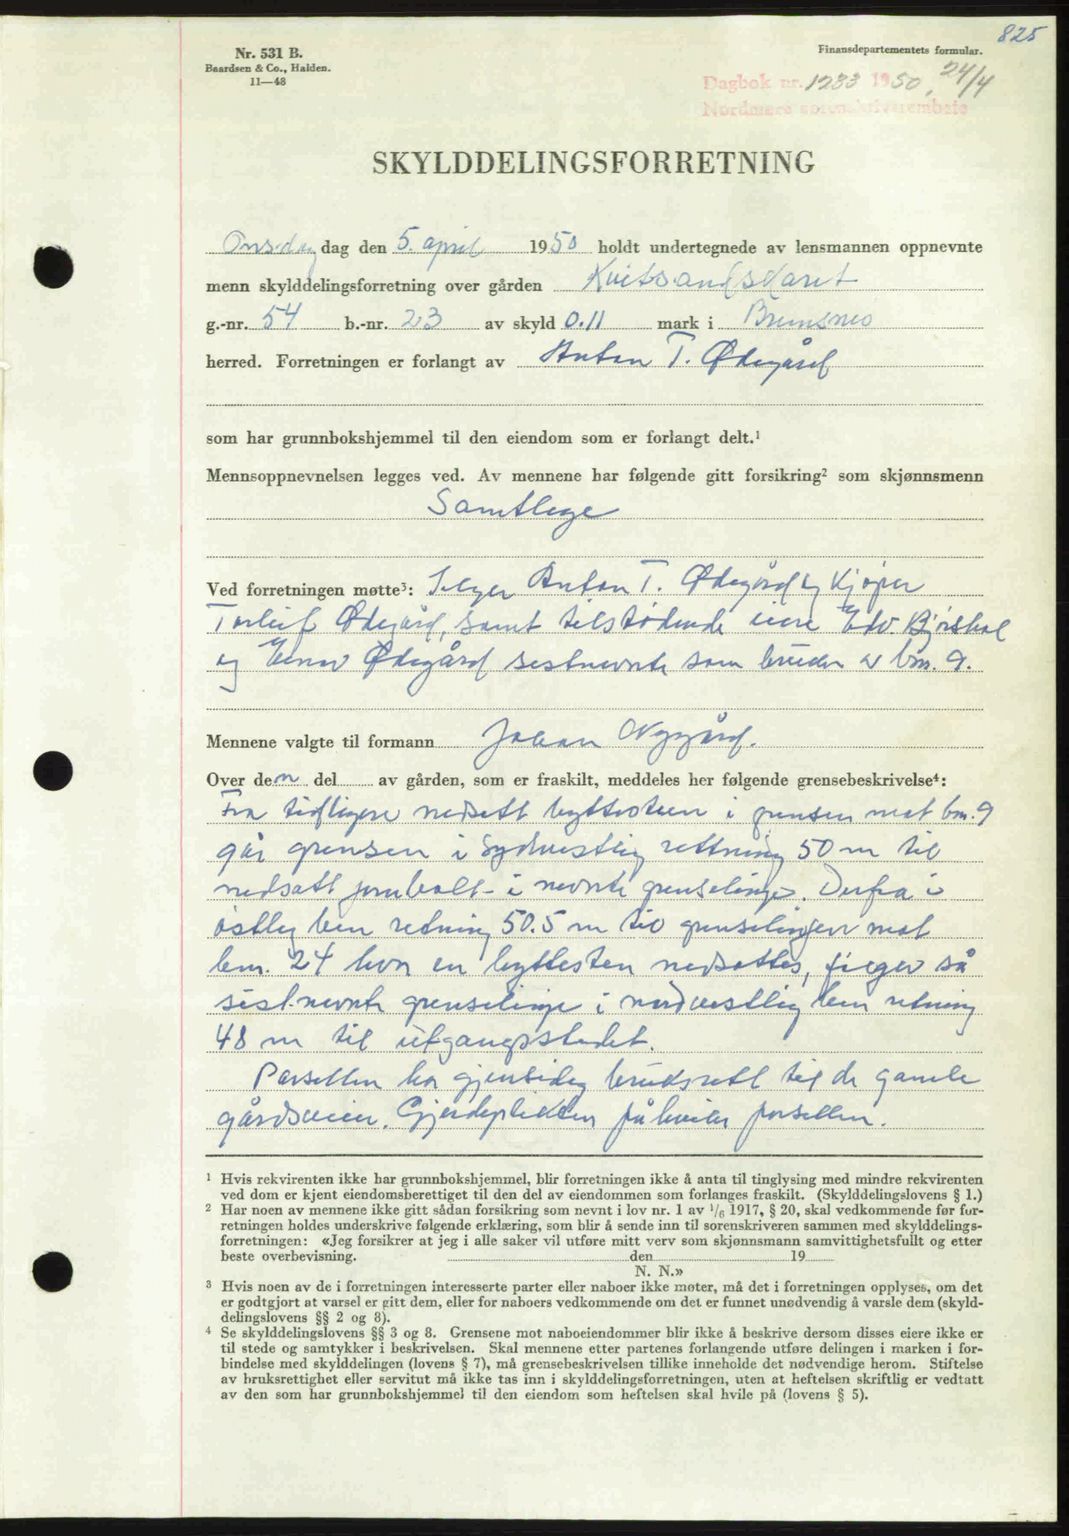 825
Nr. 531 B.
Baardsen & Co., Halden.
11—48
Finansdepartementets formular.
Dagbok nr. 1233 1950, 24/4
Nordmøre sorenskriverembete
SKYLDDELINGSFORRETNING
Onsdag dag den 5. april 1950 holdt undertegnede av lensmannen oppnevnte
menn skylddelingsforretning over gården Kvitsandskaret
g.-nr. 54 b.-nr. 23 av skyld 0.11 mark i Bremsnes
herred. Forretningen er forlangt av Anton T. Ødegård
som har grunnbokshjemmel til den eiendom som er forlangt delt.¹
Mennsoppnevnelsen legges ved. Av mennene har følgende gitt forsikring² som skjønnsmenn
Samtlege
Ved forretningen møtte³: Selger Anton T. Ødegård og kjøper
Torleif Ødegård, samt tilstødende eiere Edv. Bjørshol
og Einar Ødegård sestnevnte som bruker av bnr. 9.
Mennene valgte til formann Johan Nygård.
Over den del av gården, som er fraskilt, meddeles her følgende grensebeskrivelse⁴:
Fra tidligere nedsatt byttesteen i grensen mot bnr. 9
går grensen i sydvestlig rettning 50 m til
nedsatt jernbolt i nevnte grenselinje. Derfra i
østleg ben retning 50.5 m til grenselinjen mot
bnr. 24 hvor en byttesten nedsattes, følger så
sistnevnte grenselinje i nordvestlig ben retning
48 m til utgangsstedet.
Parsellen har gjensidig bruksrett til de gamle
gårdsveier. Gjerdeplikten påhviler parsellen.
¹ Hvis rekvirenten ikke har grunnbokshjemmel, blir forretningen ikke å anta til tinglysing med mindre rekvirenten
ved dom er kjent eiendomsberettiget til den del av eiendommen som forlanges fraskilt. (Skylddelingslovens § 1.)
² Har noen av mennene ikke gitt sådan forsikring som nevnt i lov nr. 1 av 1/6 1917, § 20, skal vedkommende før for-
retningen holdes underskrive følgende erklæring, som blir å sende inn til sorenskriveren sammen med skylddelings-
forretningen: «Jeg forsikrer at jeg i alle saker vil utføre mitt verv som skjønnsmann samvittighetsfullt og etter
beste overbevisning. den 19
N. N.»
³ Hvis noen av de i forretningen interesserte parter eller naboer ikke møter, må det i forretningen opplyses, om det
er godtgjort at varsel er gitt dem, eller for naboers vedkommende om det er funnet unødvendig å varsle dem (skyld-
delingslovens §§ 2 og 8).
⁴ Se skylddelingslovens §§ 3 og 8. Grensene mot naboeiendommer blir ikke å beskrive dersom disses eiere ikke er
til stede og samtykker i beskrivelsen. Skal mennene etter partenes forlangende utføre delingen i marken i for-
bindelse med skylddelingen (lovens § 7), må grensebeskrivelsen tillike inneholde det nødvendige herom. Stiftelse
av bruksrettighet eller servitut må ikke tas inn i skylddelingsforretningen, uten at heftelsen skriftlig er vedtatt
av den som har grunnbokshjemmel til den eiendom som heftelsen skal hvile på (lovens § 5).